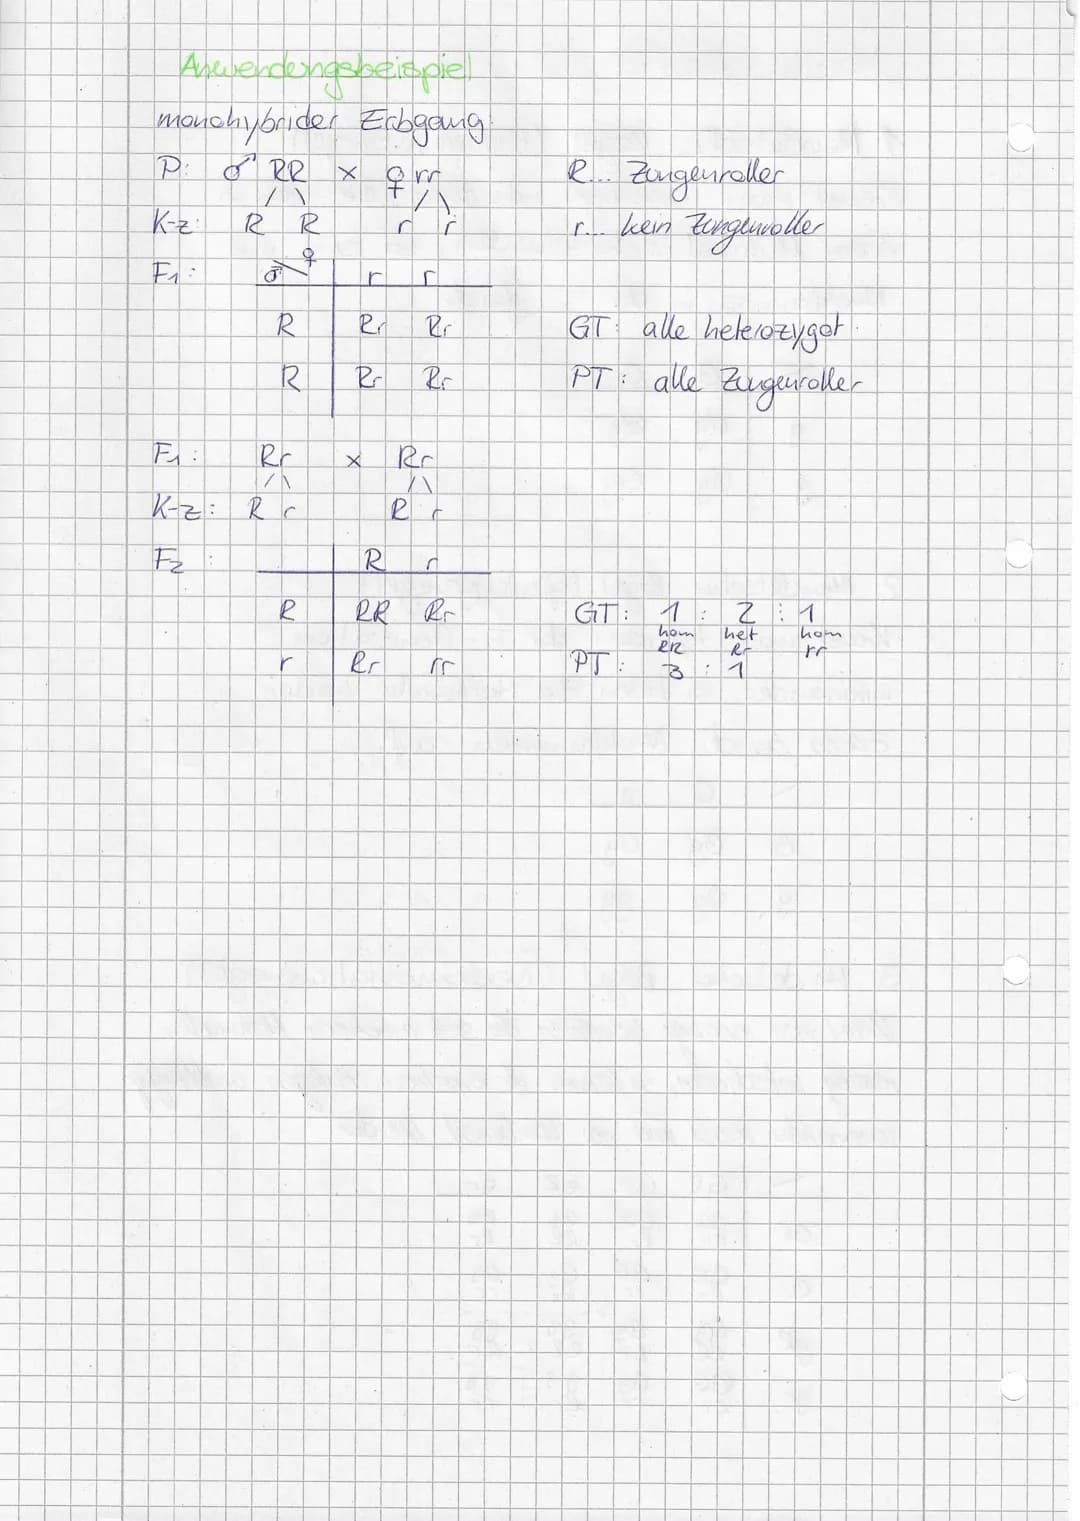 Anwendungsbeispiel
monohybrider Erbgang:
P: ♂ RR x ♀ rr R... Zungenroller
K-z: R R r r r... kein Zungenroller
F1: ♂ ♀ r r
R Rr Rr GT: alle heterozygot
R Rr Rr PT: alle Zungenroller
F1: Rr x Rr
K-z: R r R r
F2: R r
R RR Rr GT: 1 : 2 : 1
hom het hom
RR Rr rr
r Rr rr PT: 3 : 1